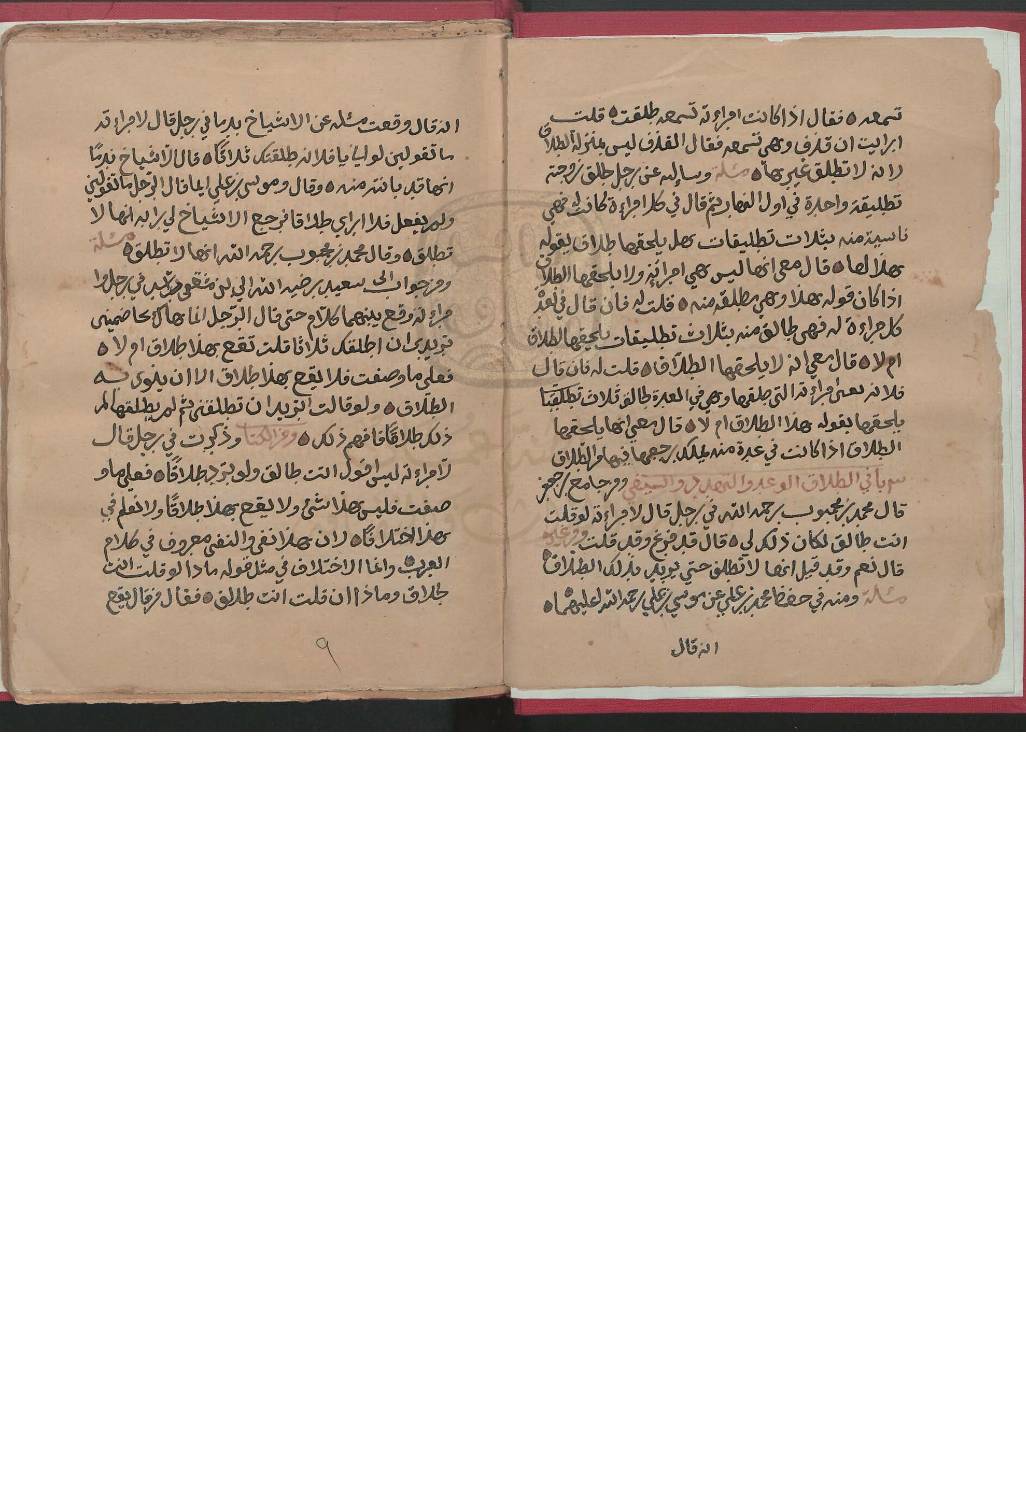 تسمعه ه فقال اذا كانت امراءته تسمعه طلقت ه قلت
ارايت ان قذف وهي تسمعه فقال القذف ليس بمنزلة الطلاق
لانه لا تطلق غيرها ه مسئلة وسالته عن رجل طلق زوجته
تطليقة واحدة في اول النهار ثم قال في كل امراءة كانت له فهي
بثلاث تطليقات هل يلحقها طلاق بقوله
هذا لها ه قال معي انها ليس هي امراته ولا يلحقها الطلاق
اذا كان قوله هذا وهي مطلقة منه ه قلت له فان قال في
كل امراءة له فهي طالق منه بثلاث تطليقات يلحقها الطلاق
ام لا ه قال معي انه لا يلحقها الطلاق ه قلت له فان قال
فلانة يعني امراءته التي طلقها وهي في العدة طالق ثلاث تطليقات
يلحقها بقوله هذا الطلاق ام لا ه قال معي انها يلحقها
الطلاق اذا كانت في عدة منه يملك رجعها فيها والطلاق
باب في الطلاق الوعد والتهديد والنفي ومن جامع بن جعفر
قال محمد بن محبوب رحمه الله في رجل قال لامراءته لو قلت
انت طالق لكان ذلك لي ه قال قد فرغ وقد قلت ومن غيره
قال نعم وقد قيل انها لا تطلق حتى يريد بذلك الطلاق ه
مسئلة ومنه في حفظ محمد بن علي عن موسى بن علي رحمه الله عليهما ه
انه قال
انه قال وقعت مسئلة عن الاشياخ بدما في رجل قال لامراءته
ما تقولين لو يا فلانة طلقتك ثلاثا ه قال الاشياخ بدما
انها قد بانت منه ه وقال موسى بن علي انما قال الرجل ما تقولين
ولم يفعل فلا ارى طلاقا فرجع الاشياخ لي رايه انها لا
تطلق ه وقال محمد بن محبوب رحمه الله انها لا تطلق ه مسئلة
ومن جواب ابي سعيد رضيه الله الي في رجل وا
مراءته وقع بينهما كلام حتى قال الرجل
تريدي ان اطلقك ثلاثا قلت تقع بهذا طلاق ام لا ه
فعلى ما وصفت فلا يقع بهذا طلاق الا ان ينوي به
الطلاق ه ولو قالت اتريد ان تطلقني ثم لم يطلقها لم
ذلك طلاقا فافهم ذلك ه ومن الكتاب وذكرت في رجل قال
لامراءته ليس اقول انت طالق ولو يرد طلاقا ه فعلى ما و
صفت فليس هذا شئ ولا يقع بهذا طلاقا ولا نعلم في
هذا اختلافا ه لان هذا نفي والنفي معروف في كلام
العرب ه وانما الاختلاف في مثل قوله ماذا لو قلت انت
طلاق وماذا ان قلت انت طالق ه فقال من قال يقع
٩